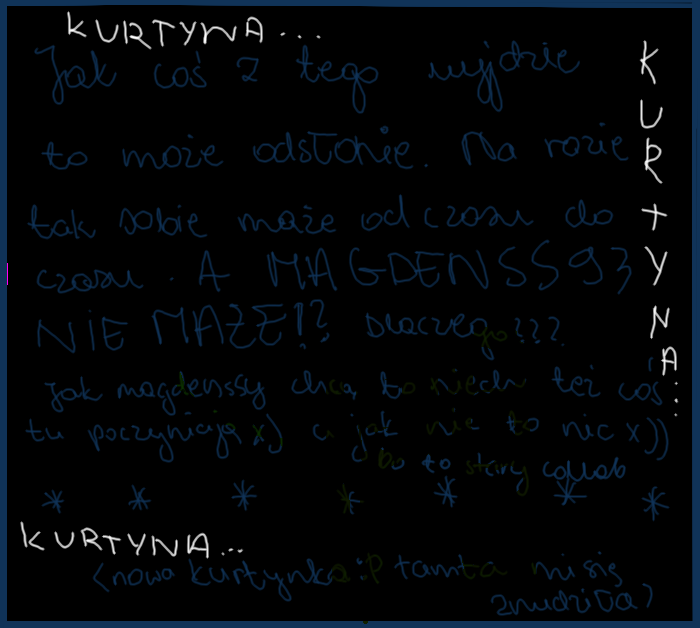 KURTYNA...
Jak coś z tego wyjdzie
to może odsłonie. Na razie
tak sobie maże od czasu do
czasu. A MAGDENSS93
NIE MAŻE!? Dlaczego???
Jak magdenssy chcą to niech też coś
tu poczyniają x) a jak nie to nic x))
bo to stary collab
* * * * * * *
KURTYNA...
<nowa kurtynka :P tamta mi się
znudziła>
KURTYNA...